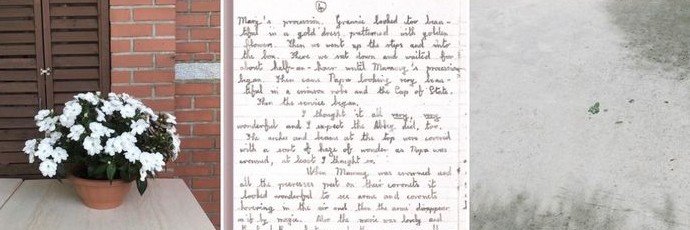 4
Mary's procession. Grannie looked too beau-
tiful in a gold dress patterned with golden
flowers. Then we went up the steps and into
the box. There we sat down and waited for
about half-an-hour until Mummy's procession
began. Then came Papa looking very beau-
tiful in a crimson robe and the Cap of State.
Then the service began.
I thought it all very, very
wonderful and I expect the Abbey did, too.
The arches and beams at the top were covered
with a sort of haze of wonder as Papa was
crowned, at least I thought so.
When Mummy was crowned and
all the peeresses put on their coronets it
looked wonderful to see arms and coronets
hovering in the air and then the arms disappear
as if by magic. Also the music was lovely and